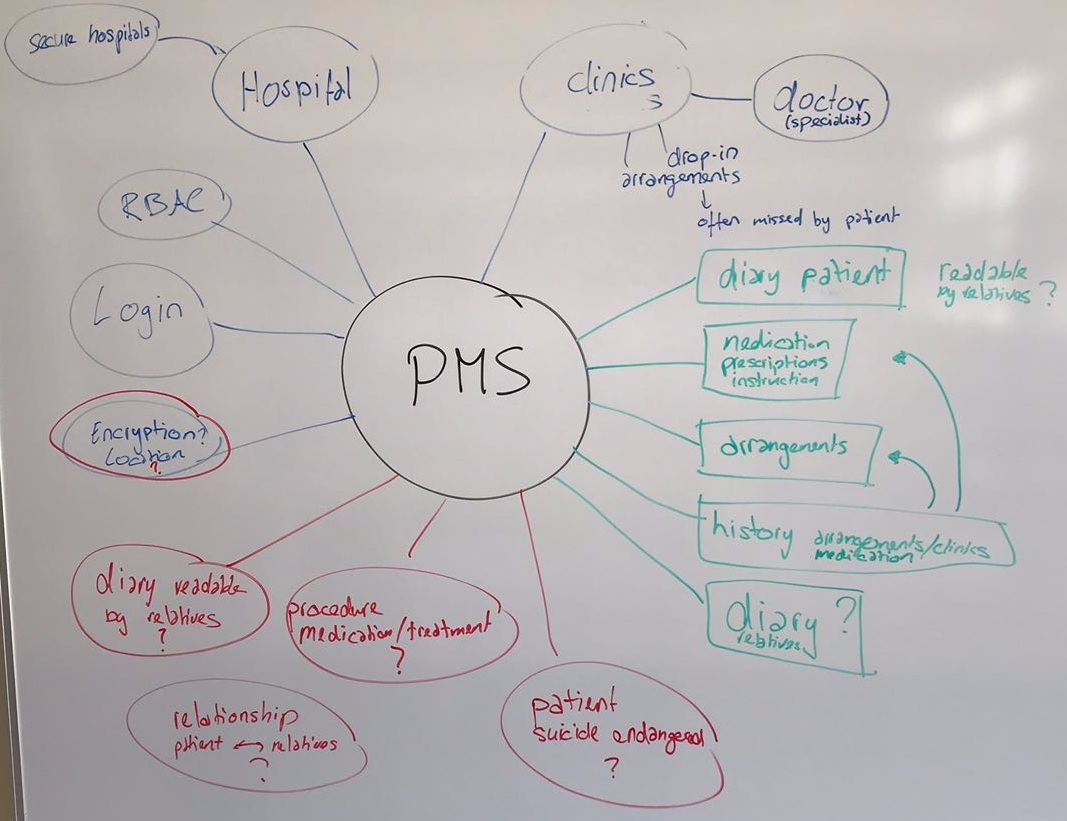 secure hospitals
Hospital
clinics
s
doctor
(specialist)
drop-in
arrangements
often missed by patient
RBAC
Login
Encryption?
Location
?
PMS
diary patient
readable
by relatives ?
medication
prescriptions
instruction
arrangements
history arrangements/clinics
medication
diary ?
relatives
diary readable
by relatives
?
procedure
medication/treatment
?
relationship
patient ↔ relatives
?
patient
suicide endangered
?